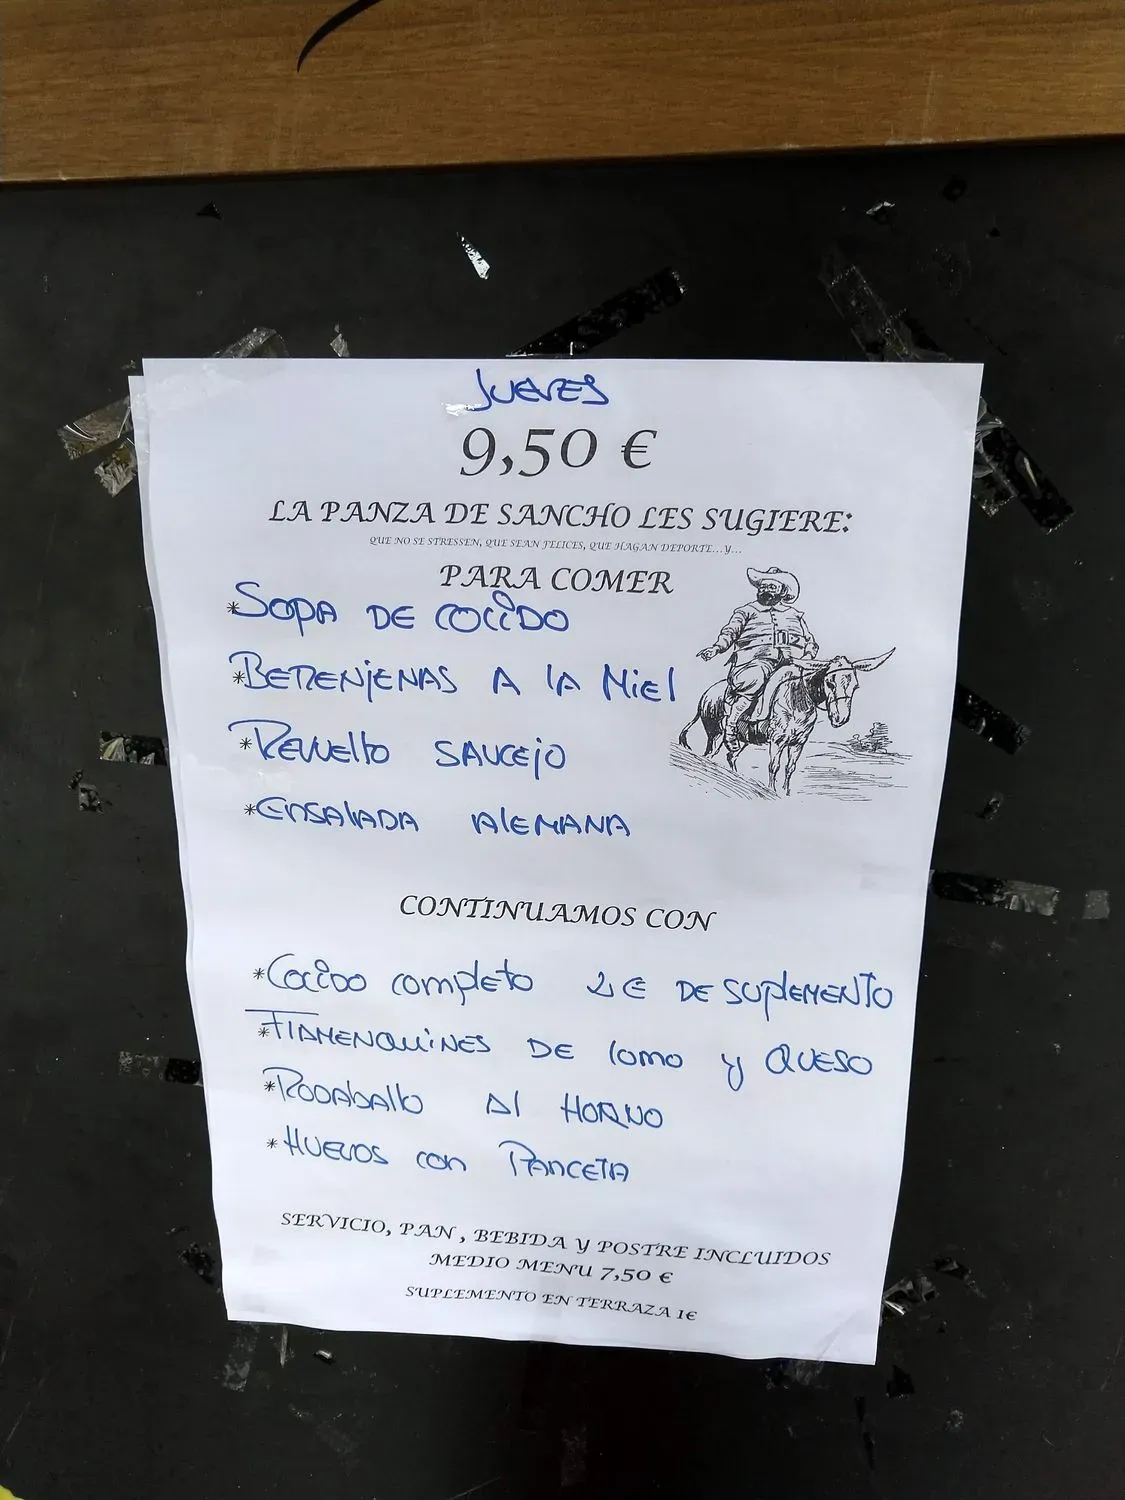 JUEVES
9,50 €
LA PANZA DE SANCHO LES SUGIERE:
QUE NO SE STRESSEN, QUE SEAN FELICES, QUE HAGAN DEPORTE...Y...
PARA COMER
*SOPA DE COCIDO
*BERENJENAS A LA MIEL
*REVUELTO SAUCEJO
*ENSALADA ALEMANA
CONTINUAMOS CON
*COCIDO COMPLETO 2€ DE SUPLEMENTO
*FLAMENQUINES DE LOMO Y QUESO
*RODABALLO AL HORNO
*HUEVOS CON PANCETA
SERVICIO, PAN , BEBIDA Y POSTRE INCLUIDOS
MEDIO MENU 7,50 €
SUPLEMENTO EN TERRAZA 1€